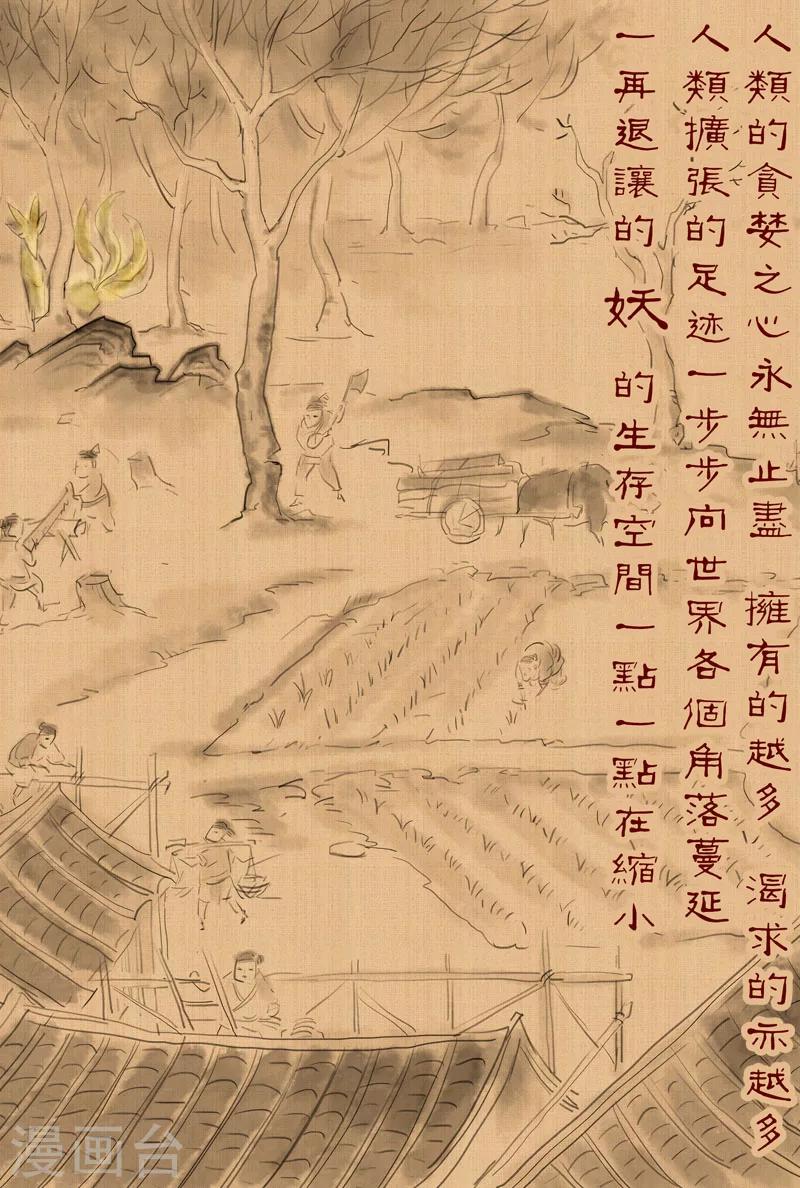 人類的貪婪之心永無止盡 擁有的越多 渴求的亦越多
人類擴張的足迹一步步向世界各個角落蔓延
一再退讓的 妖 的生存空間一點一點在縮小
漫画台